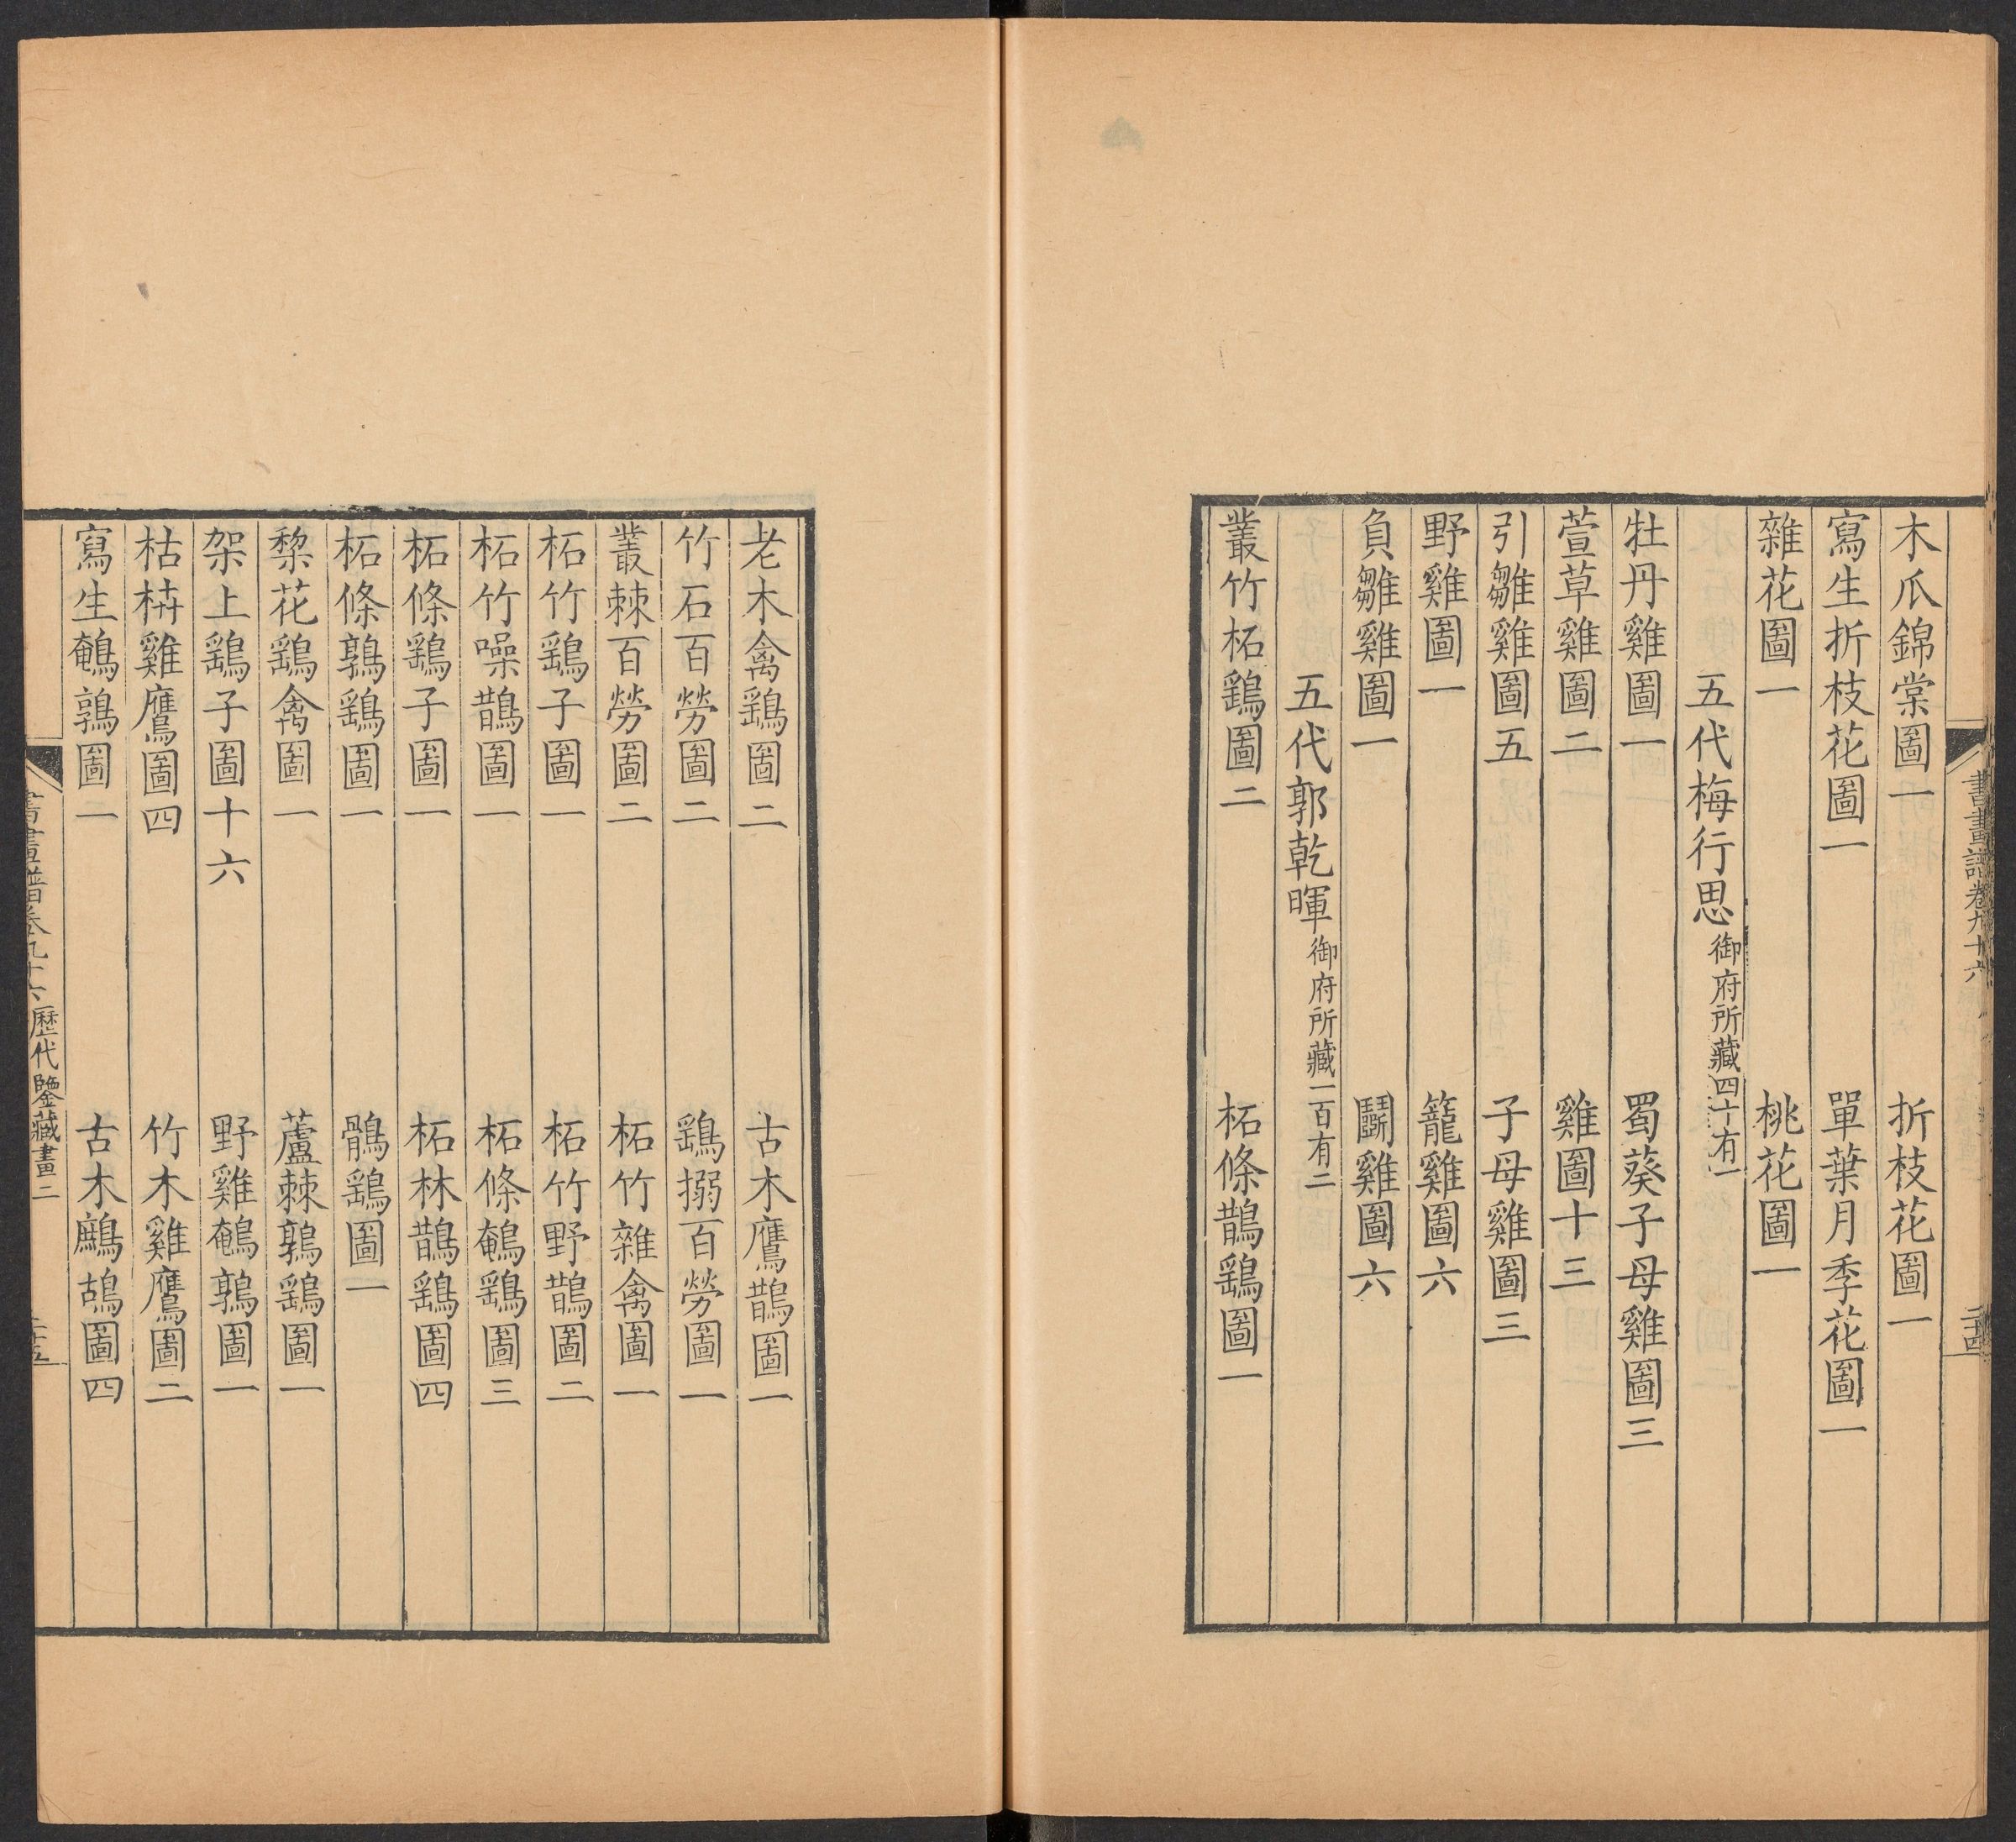 書畫譜卷九十六 二十四
木瓜錦棠圖一 折枝花圖一
寫生折枝花圖一 單葉月季花圖一
雜花圖一 桃花圖一
五代梅行思 御府所藏四十有一
牡丹雞圖一 蜀葵子母雞圖三
萱草雞圖二 雞圖十三
引雛雞圖五 子母雞圖三
野雞圖一 籠雞圖六
負雛雞圖一 鬭雞圖六
五代郭乾暉 御府所藏一百有二
叢竹柘鷂圖二 柘條鵲鷂圖一
老木禽鷂圖二 古木鷹鵲圖一
竹石百勞圖二 鷂搦百勞圖一
叢棘百勞圖二 柘竹雜禽圖一
柘竹鷂子圖一 柘竹野鵲圖二
柘竹噪鵲圖一 柘條鵪鷂圖三
柘條鷂子圖一 柘林鵲鷂圖四
柘條鶉鷂圖一 鶻鷂圖一
棃花鷂禽圖一 蘆棘鶉鷂圖一
架上鷂子圖十六 野雞鵪鶉圖一
枯枿雞鷹圖四 竹木雞鷹圖二
寫生鵪鶉圖二 古木鷓鴣圖四
書畫譜卷九十六 歷代鑒藏畫二 二十五